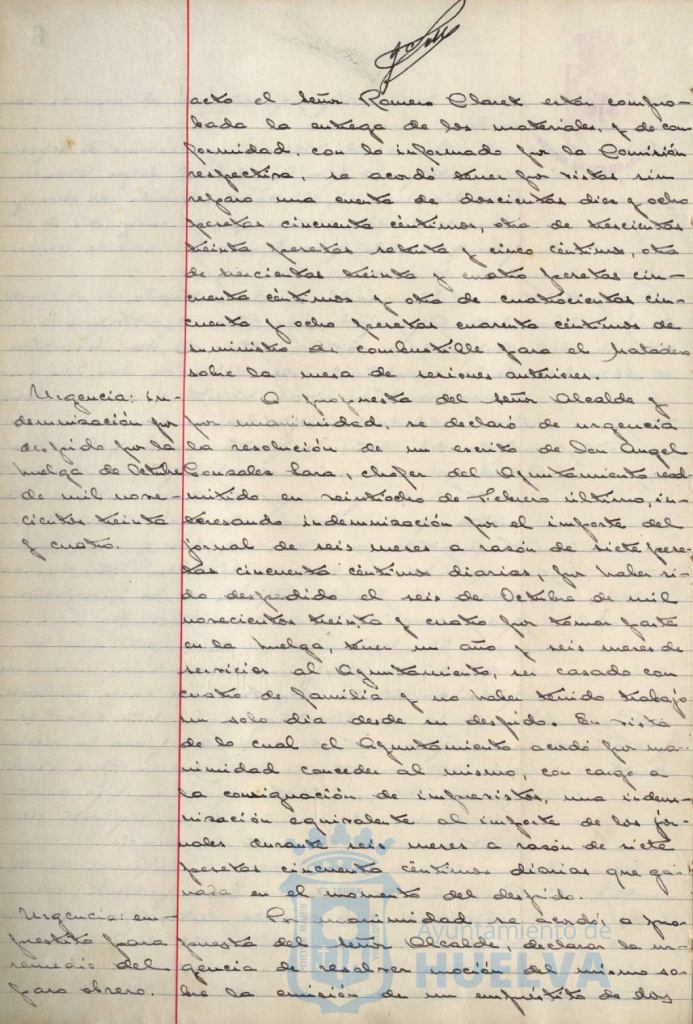 acto el Señor Romero Claret están compro-
bada la entrega de los materiales, y de con
formidad, con lo informado por la Comisión
respectiva, se acordó tener por vistas sin
reparo una cuenta de doscientas diez y ocho
pesetas cincuenta céntimos, otra de trescientas
treinta pesetas setenta y cinco céntimos, otra
de trescientas treinta y cuatro pesetas cin-
cuenta céntimos y otra de cuatrocientas cin-
cuenta y ocho pesetas cuarenta céntimos de
suministro de combustible para el Matadero
sobre la mesa de sesiones anteriores.
Urgencia: in-
demnización por
despido por la
huelga de Octubre
de mil nove-
cientos treinta
y cuatro.
A propuesta del Señor Alcalde y
por unanimidad, se declaró de urgencia
la resolución de un escrito de Don Angel
Gonzales Lara, chofer del Ayuntamiento read-
mitido en veintiocho de Febrero último, in-
teresando indemnización por el importe del
jornal de seis meses a razón de siete pese-
tas cincuenta céntimos diarias, por haber si-
do despedido el seis de Octubre de mil
novecientos treinta y cuatro por tomar parte
en la huelga, tener un año y seis meses de
servicios al Ayuntamiento, ser casado con
cuatro de familia y no haber tenido trabajo
un solo dia desde su despido. En vista
de lo cual el Ayuntamiento acordó por una-
nimidad conceder al mismo, con cargo a
la consignación de imprevistos, una indem-
nización equivalente al importe de los jor-
nales durante seis meses a razón de siete
pesetas cincuenta céntimos diarias que ga-
naba en el momento del despido.
Urgencia: em-
préstito para
remedio del
paro obrero.
Por unanimidad se acordó, a pro-
puesta del Señor Alcalde, declarar la ur-
gencia de resolver moción del mismo so-
bre la emisión de un empréstito de dos
Ayuntamiento de
HUELVA